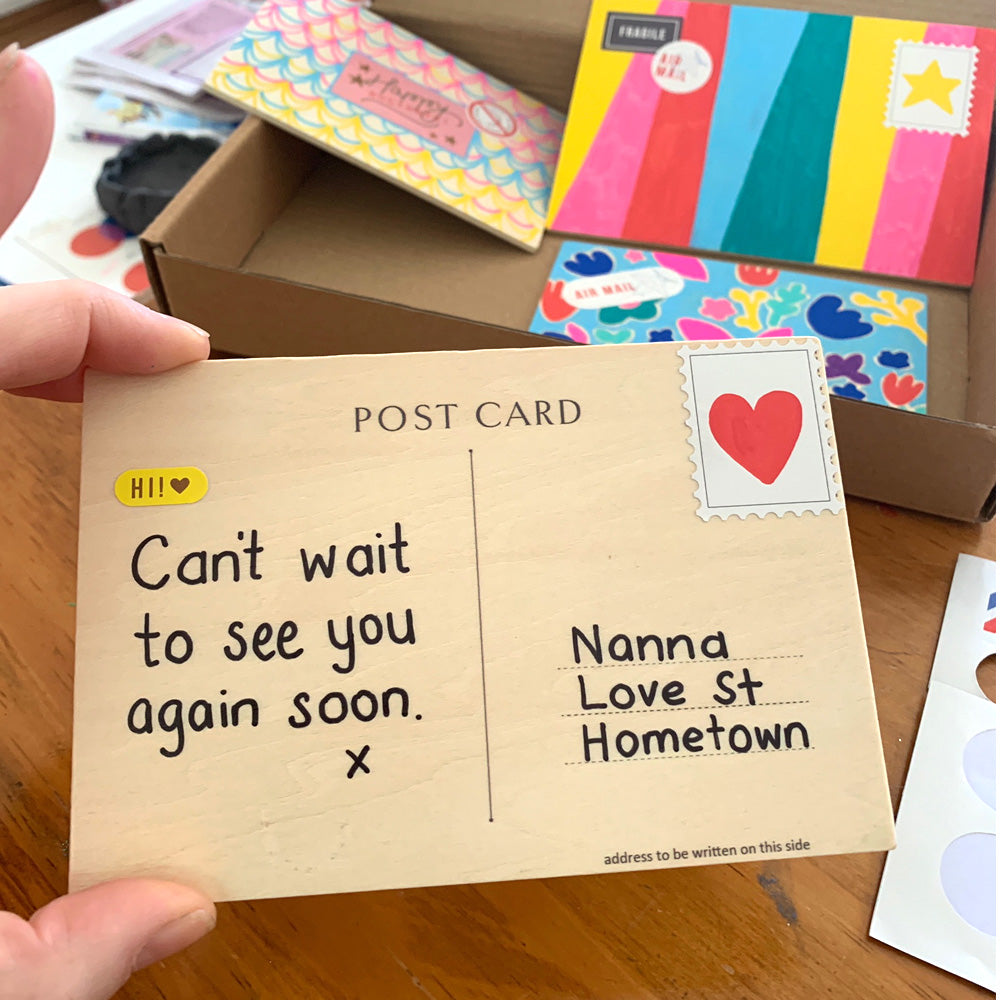 FRAGILE
AIR
MAIL
AIR MAIL
POST CARD
HI!
Can't wait
to see you
again soon.
x
Nanna
Love St
Hometown
address to be written on this side